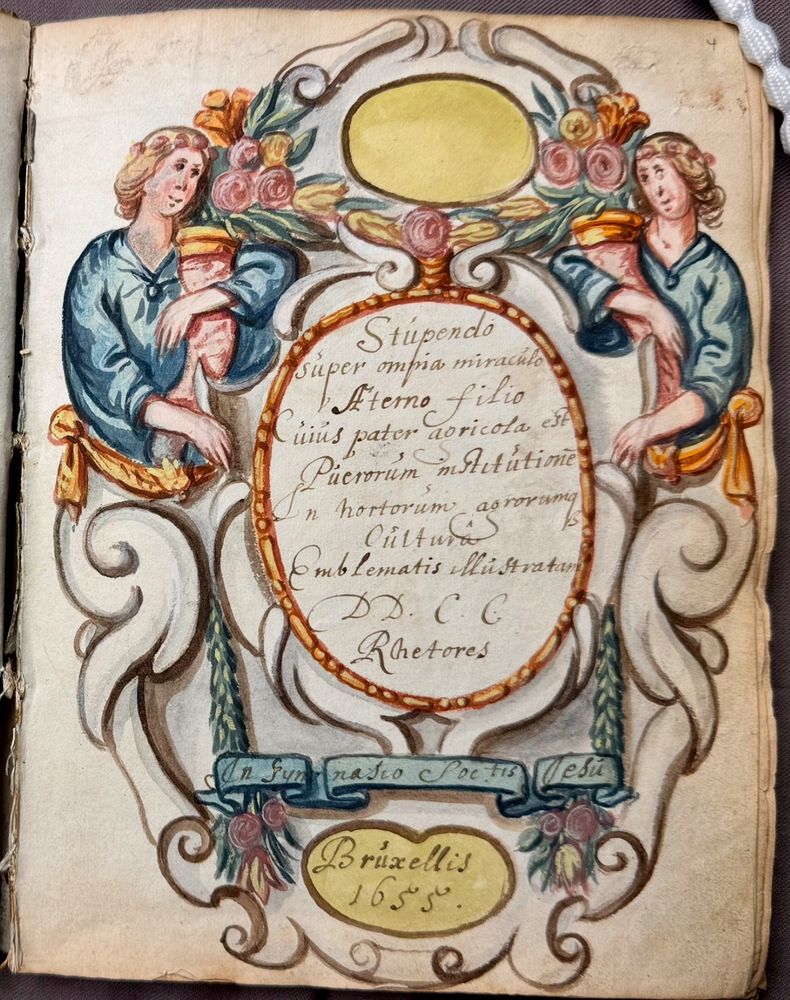 4
Stúpendo
súper omnia miraculo
Æterno filio
Cuius pater agricola est
Púerorúm instititútionē
In hortorum agrorumq
Culturâ
Emblematis illústratam
DD. C. C
Rhetores
In Gymnasio Soctis Jesú
Brúxellis
1655.